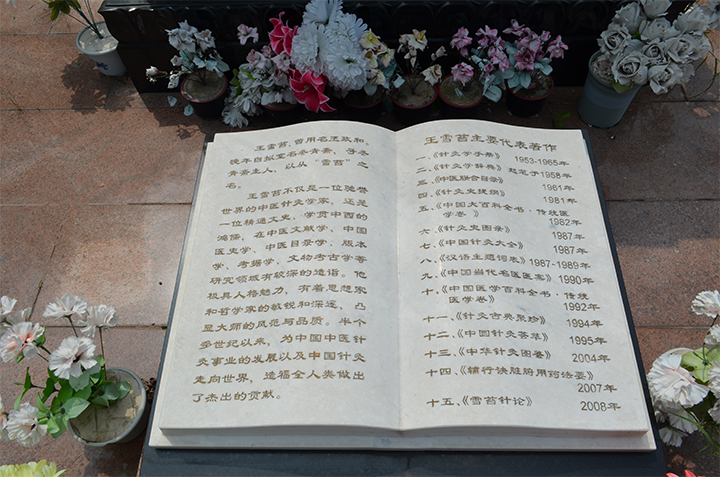 王雪苔，曾用名王政和。
晚年自拟室名冬青斋，号冬
青斋主人，以从“雪苔”之
名。
王雪苔不仅是一位驰誉
世界的中医针灸学家，还是
一位精通文史，学贯中西的
鸿儒，在中医文献学、中国
医史学、中医目录学、版本
学、考据学、文物考古学等
研究领域有较深的造诣。他
极具人格魅力，有着思想家
和哲学家的敏锐和深邃，凸
显大师的风范与品质。半个
多世纪以来，为中国中医针
灸事业的发展以及中国针灸
走向世界，造福全人类做出
了杰出的贡献。
王雪苔主要代表著作
一、《针灸学手册》 1953-1965年
二、《针灸学辞典》 起笔于1958年
三、《中医联合目录》 1961年
四、《针灸史提纲》 1981年
五、《中国大百科全书·传统医
学卷》 1982年
六、《针灸史图录》 1987年
七、《中国针灸大全》 1987年
八、《汉语主题词表》1987-1989年
九、《中国当代名医医案》 1990年
十、《中国医学百科全书·传统
医学卷》 1992年
十一、《针灸古典聚珍》 1994年
十二、《中国针灸荟萃》 1995年
十三、《中华针灸图鉴》 2004年
十四、《辅行诀脏腑用药法要》
2007年
十五、《雪苔针论》 2008年